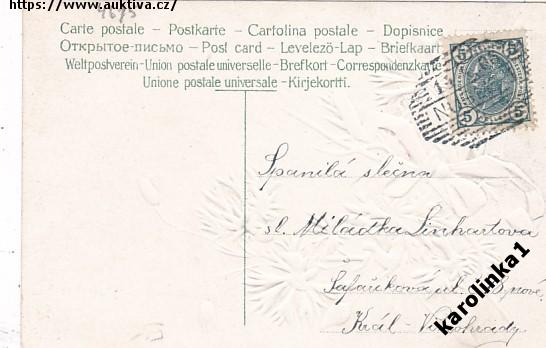 https://www.auktiva.cz/
4675
Carte postale - Postkarte - Cartolina postale - Dopisnice
Открытое-письмо - Post card - Levelező-Lap - Briefkaart
Weltpostverein-Union postale universelle-Brefkort-Correspondenzkarte
Unione postale universale - Kirjekortti.
5 5
5
Spanilá slečna
sl. Miládka Linhartová
Šafaříková ul.
Král. Vinohrady
karolinka1